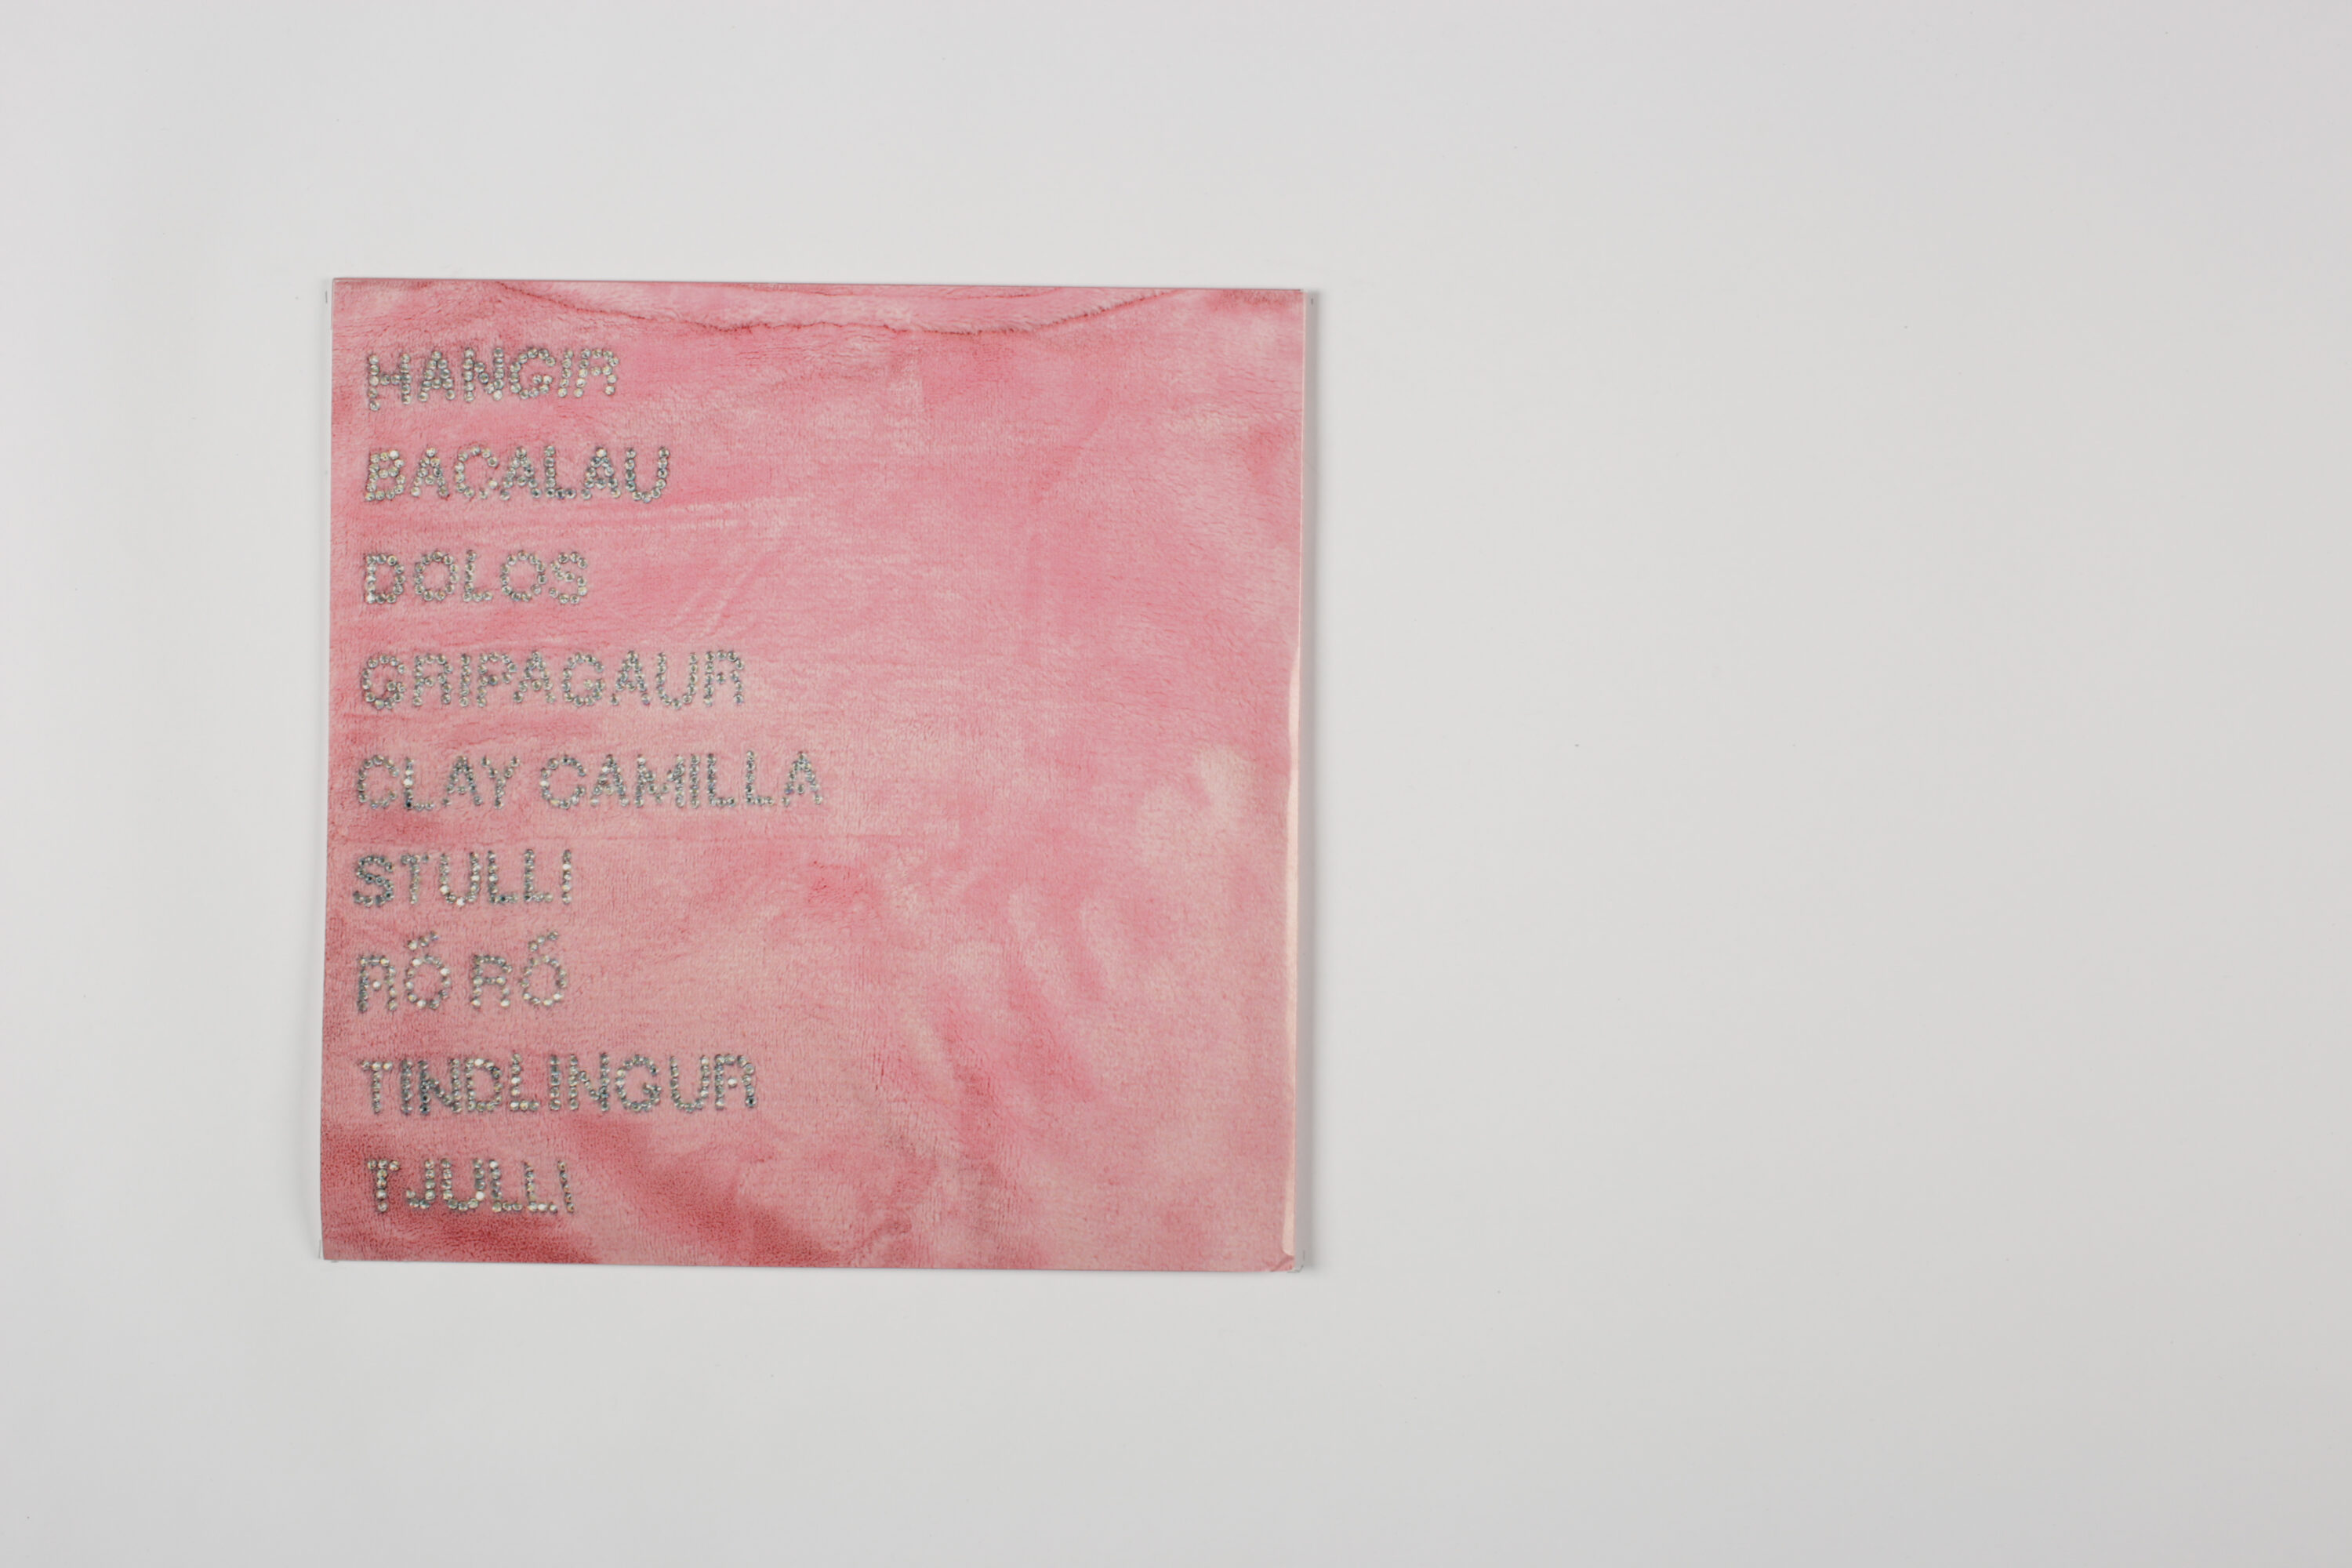 HANGIR
BACALAU
DOLOS
GRIPAGAUR
CLAY CAMILLA
STULLI
RŐ RŐ
TINDLINGUR
TJULLI